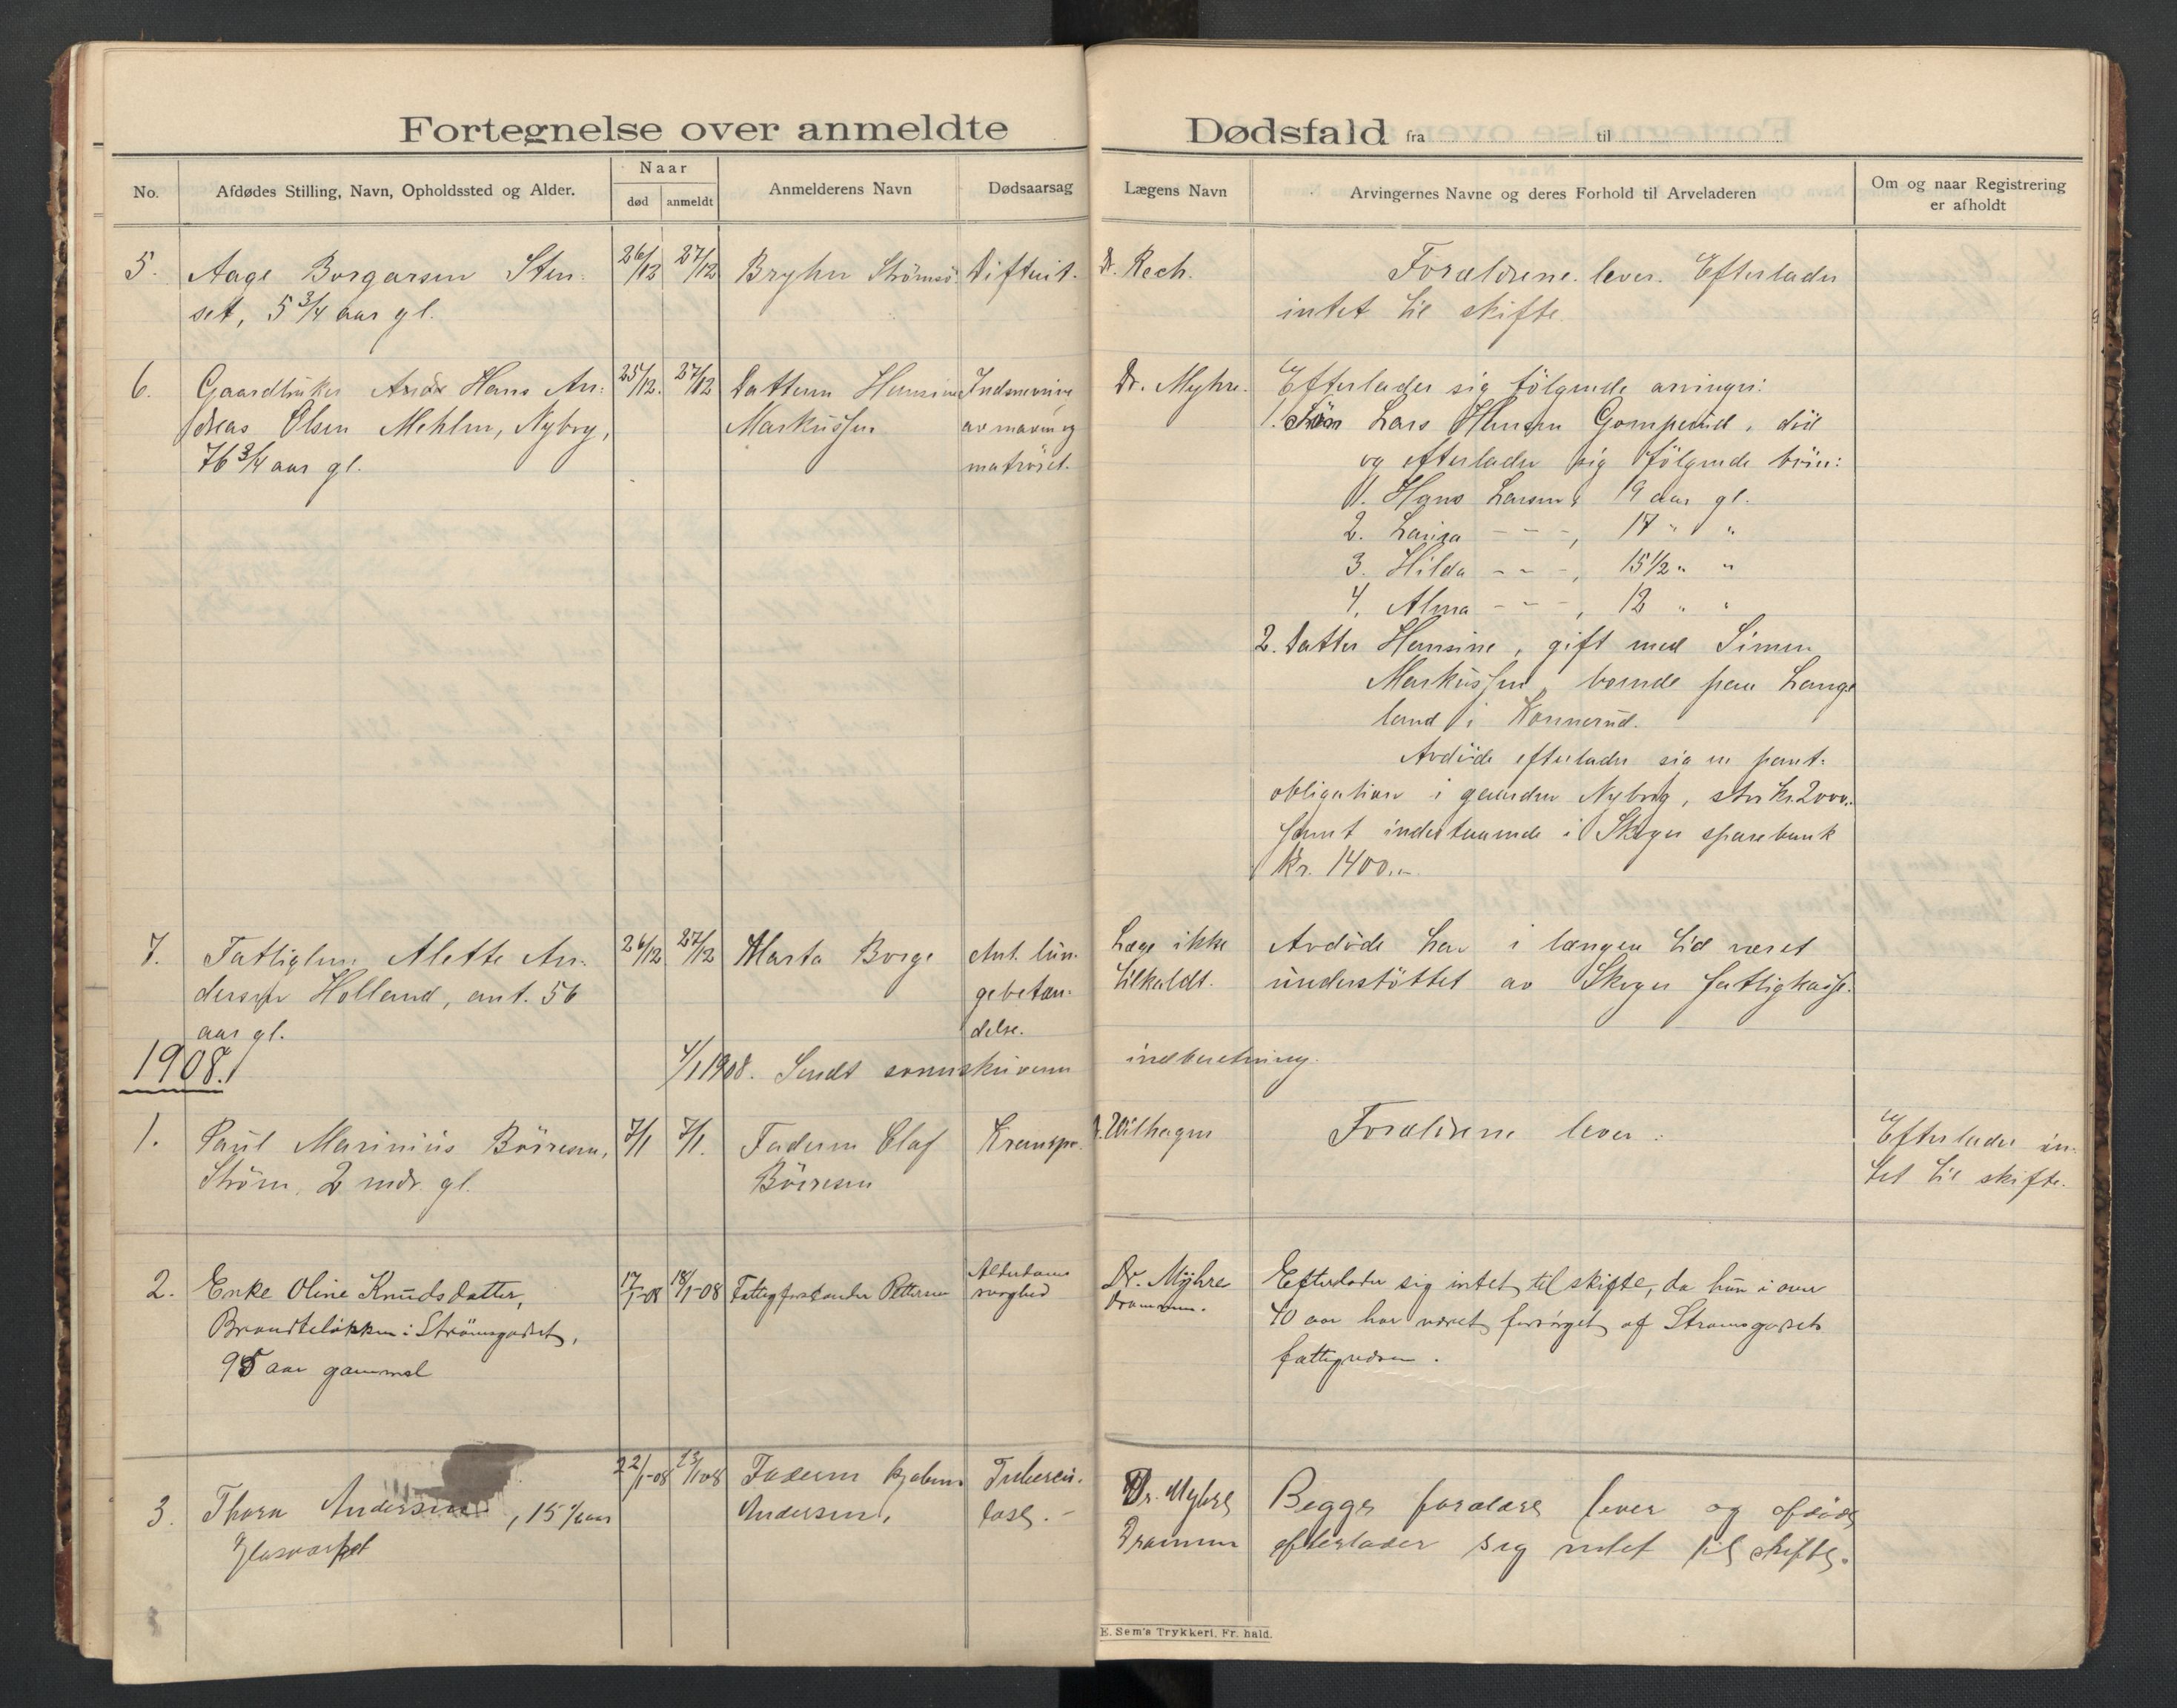 Fortegnelse over anmeldte Dødsfald fra til
No.
Afdødes Stilling, Navn, Opholdssted og Alder.
Naar
død
anmeldt
Anmelderens Navn
Dødsaarsag
Lægens Navn
Arvingernes Navne og deres Forhold til Arveladeren
Om og naar Registrering
er afholdt
5. Aage Borgarsen Sten-
set, 5 3/4 aar gl.
26/12 27/12
Bryhn Strömsö.
Difterit.
Dr. Rech.
Forældrene lever. Efterlader
intet til skifte.
6. Gaardbruker Hans An-
dreas Olsen Mehlen, Nyborg,
76 3/4 aar gl.
25/12. 27/12
Datteren Hansine
Markussen
Indsnevring
av maven og
matröret.
Dr. Myhre.
Efterlader sig følgende arvinger:
1. Søn Lars Hansen Gomperud, död
og efterlader sig følgende börn:
1. Hans Larsen, 19 aar gl.
2. Laura - - -, 17 " "
3. Hilda - - -, 15 1/2 " "
4. Alma - - -, 12 " "
2. Datter Hansine, gift med Simen
Markussen, boende paa Lange
land i Konnerud.
Avdöde efterlader sig en pant-
obligation i gaarden Nyborg, stor kr. 2000.-
samt indestaaende i Skoger sparebank
kr. 1400.-
7. Fattiglem Alette An-
dersen Holland, ant. 56
aar gl.
26/12 27/12
Marta Borge
Ant. lun-
gebetæn-
delse.
Læge ikke
tilkaldt.
Avdöde har i længere tid været
understöttet av Skoger fattigkasse.
1908.
4/1 1908. Sendt sorenskriveren indberetning.
1. Paul Marinius Böirresen,
Ström, 2 mdr. gl.
7/1 7/1.
Faderen Olaf
Böirresen
Krampe.
Dr. Wilhagen
Forældrene lever.
Efterlader in-
tet til skifte.
2. Enke Oline Knudsdatter,
Brandteløkken i Strömsgodset,
95 aar gammel
17/1-08 18/1-08
Fattigforstander Pettersen
Alderdoms
svaghed
Dr. Myhre
Drammen.
Efterlader sig intet til skifte, da hun i over
40 aar har været forsörget af Strømsgodsets
fattigvæsen.
3. Thora Andersen, 15 aar
Glasværket
22/1-08 23/1 08
Faderen
Andersen,
Tubercu-
lose. -
Dr. Myhre
Drammen
Begge forældre lever og afdøde
efterlader sig intet til skifte.
E. Sem's Trykkeri, Fr. hald.